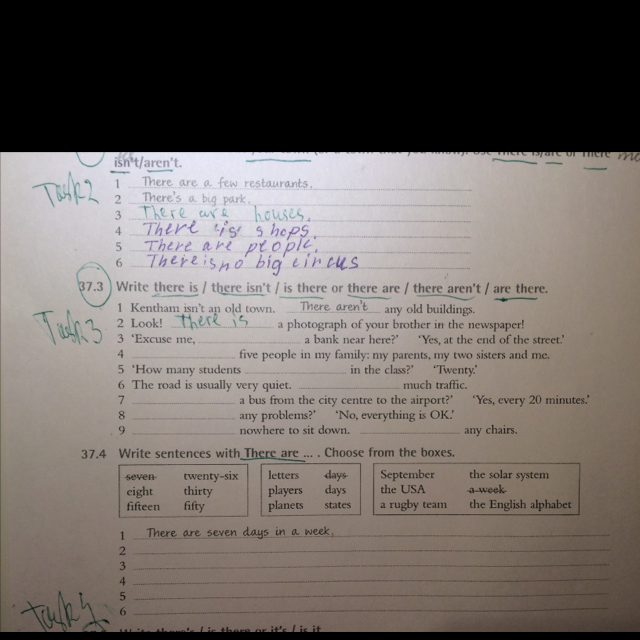 isn't/aren't.
Task2
1 There are a few restaurants.
2 There's a big park.
3 There are houses.
4 There is shops.
5 There are people.
6 There is no big circus
37.3 Write there is / there isn't / is there or there are / there aren't / are there.
Task3
1 Kentham isn't an old town. There aren't any old buildings.
2 Look! There is a photograph of your brother in the newspaper!
3 'Excuse me, a bank near here?' 'Yes, at the end of the street.'
4 five people in my family: my parents, my two sisters and me.
5 'How many students in the class?' 'Twenty.'
6 The road is usually very quiet. much traffic.
7 a bus from the city centre to the airport?' 'Yes, every 20 minutes.'
8 any problems?' 'No, everything is OK.'
9 nowhere to sit down. any chairs.
37.4 Write sentences with There are ... . Choose from the boxes.
seven twenty-six letters days September the solar system
eight thirty players days the USA a week
fifteen fifty planets states a rugby team the English alphabet
1 There are seven days in a week.
2
3
4
5
6